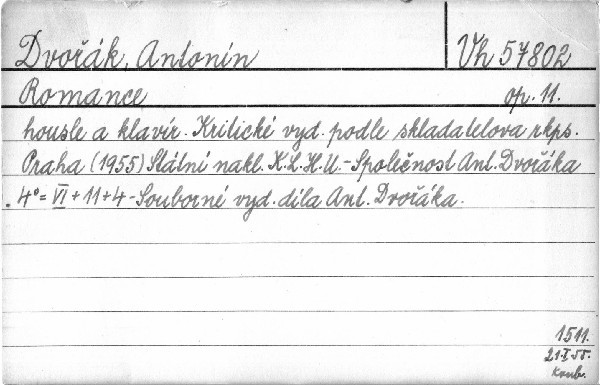 Dvořák, Antonín Vh 57802
Romance op. 11.
housle a klavír. Kritické vyd. podle skladatelova rkps.
Praha (1955) Státní nakl. K.L.H.U. - Společnost Ant. Dvořáka
4° = VI + 11 + 4 - Souborné vyd. díla Ant. Dvořáka.
1511.
21.X.55.